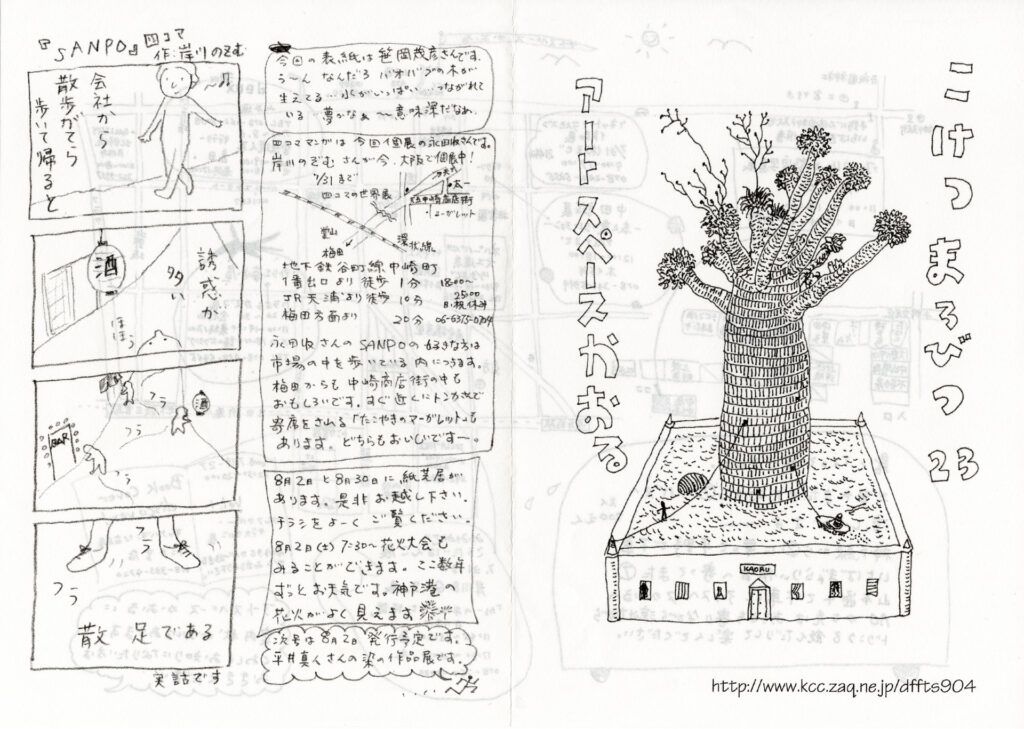 こけつまろびつ 23
アートスペースかおる
KAORU
http://www.kcc.zaq.ne.jp/dffts904
『SANPO』四コマ
作:岸川のぞむ
会社から
散歩がてら
歩いて帰ると
誘惑が
多い
酒
ほほう
フラ
フラ
酒
BAR
フラ
フラ
散足である
実話です
今回の表紙は笹岡茂彦さんです。
う〜ん なんだろ バオバブの木が
生えてる…水がいっぱい…つながれて
いる…夢かなぁ〜意味深だなぁ。
四コママンガは今回個展の永田收さんです。
岸川のぞむさんが今、大阪で個展中!
7/31まで
四コマの世界展
中崎商店街
マーガレット
堂山
梅田
環状線
地下鉄谷町線中崎町
1番出口より徒歩 1分
JR天満より徒歩 10分
梅田方面より 20分
18:00〜
25:00
06-6375-0704
永田收さんのSANPOの好きな方は
市場の中を歩いている内につきます。
梅田からも中崎商店街の中も
おもしろいです。すぐ近くにトンカさんで
寄席をされる「たこやきのマーガレット」も
あります。どちらもおいしいです〜。
8月2日と8月30日に紙芝居が
あります。是非お越し下さい。
チラシをよーくご覧ください。
8月2日(土)7:30〜花火大会も
みることができます。ここ数年
ずっとお天気です。神戸港の
花火がよく見えます
次号は8月2日発行予定です。
平井真人さんの染の作品展です。